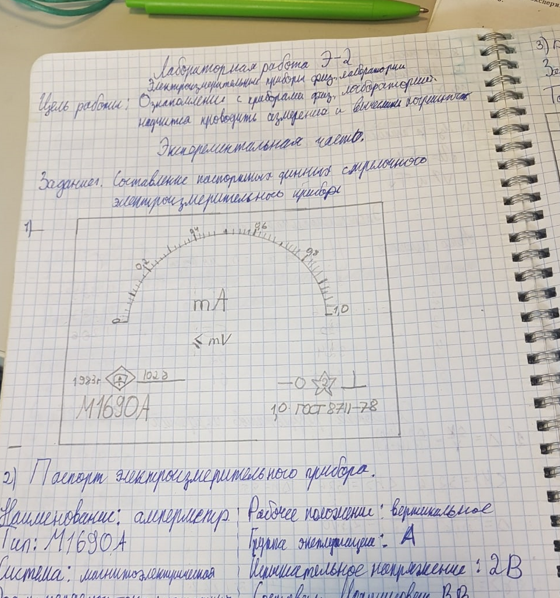 Лабораторная работа Э-2
Электроизмерительные приборы физ. лаборатории
Цель работы: Ознакомление с приборами физ. лаборатории.
научится проводить измерения и погрешности
Эксперементальная часть.
Задание1. Составление паспортных данных стрелочного
электроизмерительного прибора
1)
0 0,2 0,4 0,6 0,8 1,0
mA
mV
1983г 102д
М1690А
1,0 ГОСТ 8711-78
2) Паспорт электроизмерительного прибора.
Наименование: амперметр Рабочее положение: вертикальное
Тип: М1690А Группа эксплуатации: А
Система: магнитоэлектрическая напряжение: 2В
3)